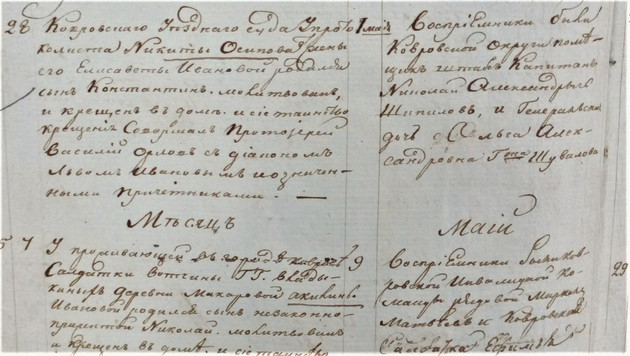 28 Ковровского Уѣзднаго суда Упрото 1 маiя
колиста Никиты Осипова жены
его Елисаветы Ивановой родился
сынъ Константинъ. молитвовалъ,
и крещенъ въ домѣ. и сiе таинство
крещенiя совершалъ Протоiерей
Василiй Орловъ съ дiакономъ
Львомъ Ивановымъ и означен-
ными Причетниками. —
Воспрiемники были
Ковровской округи помѣ-
щикъ штапъ Капитанъ
Николай Александрычь
Шипиловъ, и Генеральска
дочь Ольга Алек-
сандровна Шувалова
Мѣсяцъ Маiй
57 У проживающей въ городѣ Ковровѣ 9
Салдатки Вотчины ГГ. Влады-
киныхъ деревни Макаровой Акилины
Ивановой родился сынъ незаконно-
прижитой Николай. молитвовалъ
и крещенъ въ домѣ. и сiе таинство
Воспрiемники были Ков-
ровской Инвалидной Ко-
манды рядовой
Матвѣевъ и Ковровская
Салдатка
29